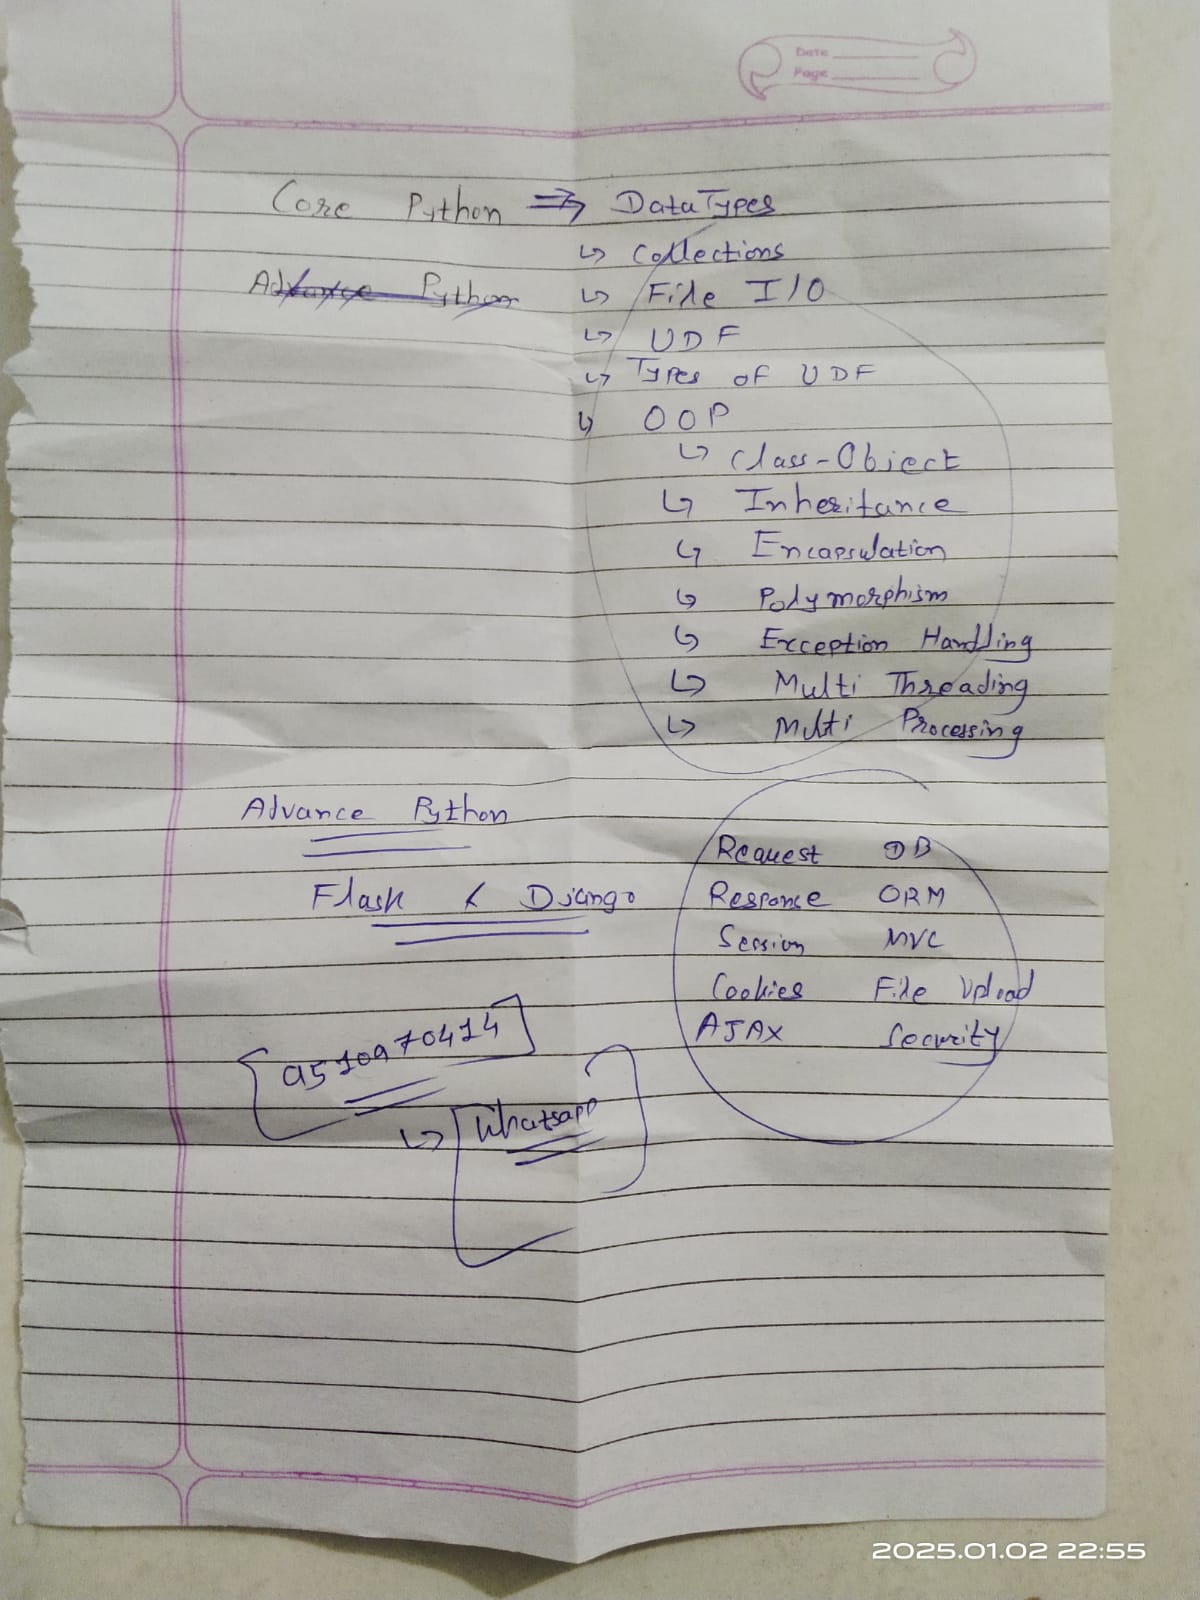 Date
Page
Core Python ⇒ DataTypes
↳ Collections
Advance Python ↳ File I/O
↳ UDF
↳ Types of UDF
↳ OOP
↳ Class-Object
↳ Inheritance
↳ Encapsulation
↳ Polymorphism
↳ Exception Handling
↳ Multi Threading
↳ Multi Processing
Advance Python
Request DB
Flask & Django
Response ORM
Session MVC
Cookies File Upload
AJAX Security
9510970414
↳ Whatsapp
2025.01.02 22:55